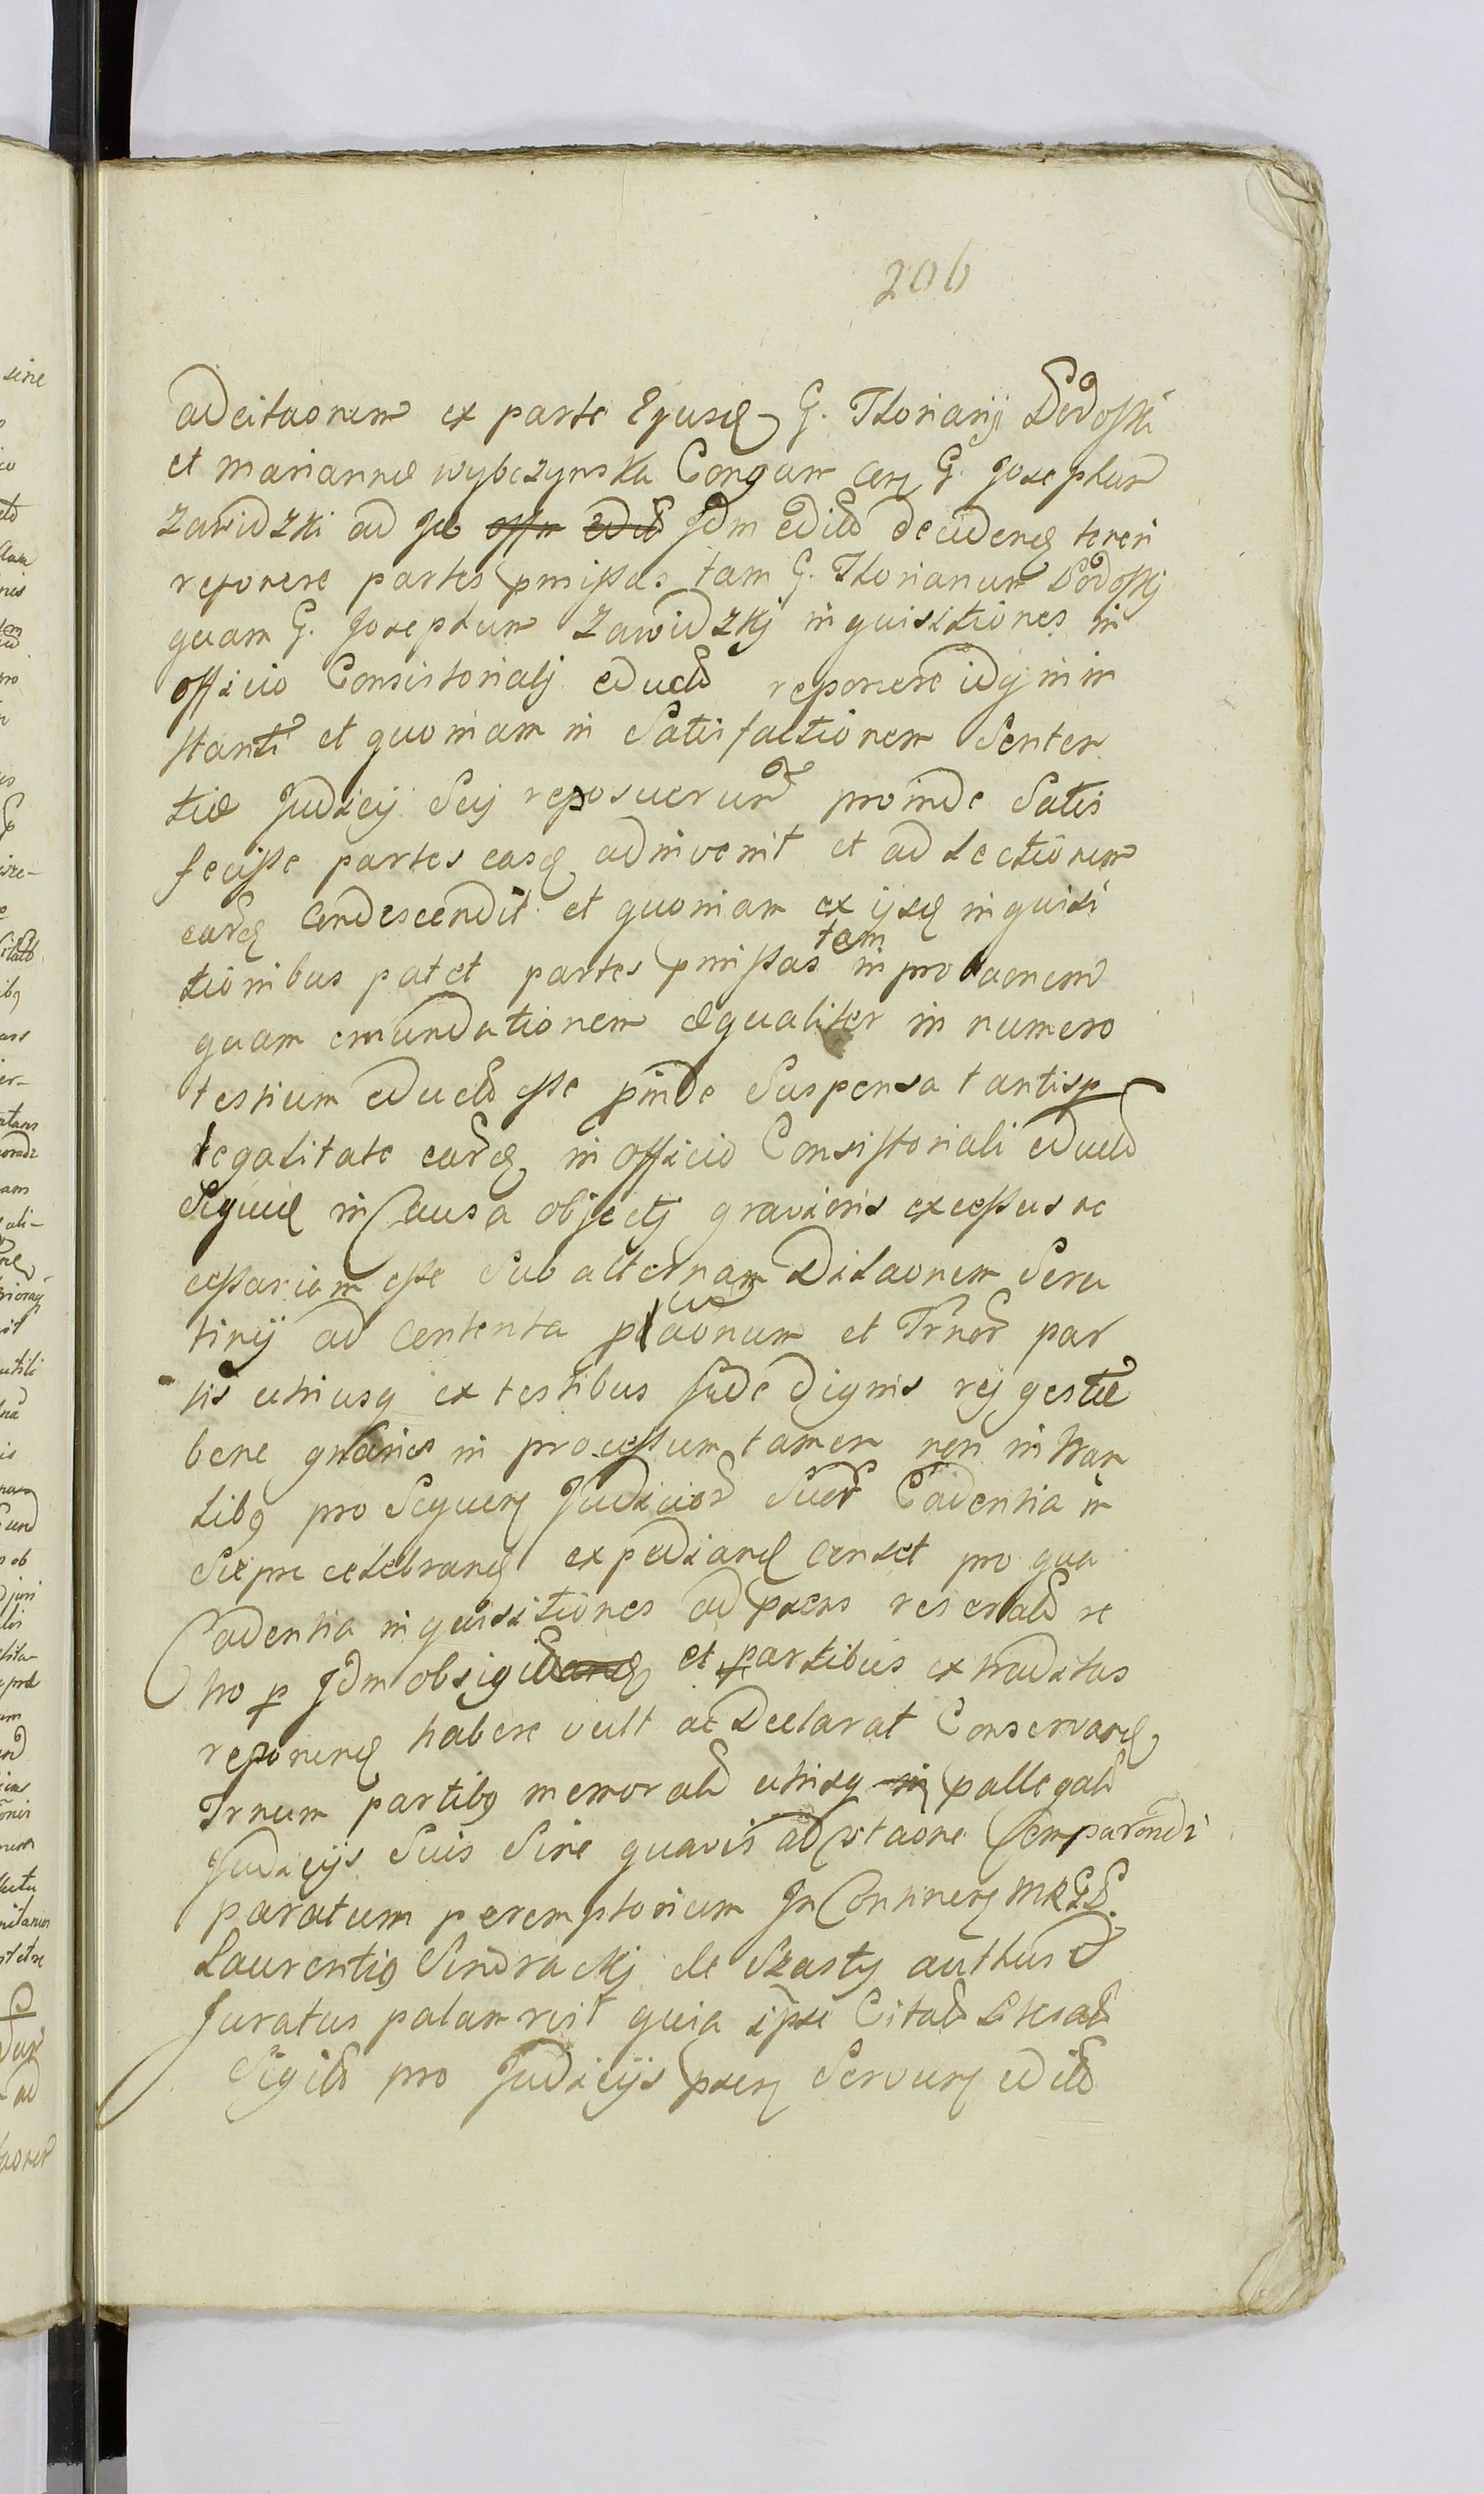 206
adcitaonem ex parte Ejusd G. Florianij Dodosski
et Mariannæ Wybczynska Congum cerq G. Josephum
Zawidzki ad Jud offm edict Jdm edict decidenq teneri
reponere partes pmissas tam G. Florianum Dodosskj
quam G. Josephum Zawidzkj inquisitiones in
officio Consistorialj educt reponere idq in in
stanti et quoniam in Satisfactionem Senten
tiæ Judicij Sui reposuerund proinde Satis
fecisse partes easq adinvenit et ad lectionem
earq Condescendit et quoniam ex ijsd inquisi
tionibus patet partes pmissas tam in probaonem
quam emundationem æqualiter in numero
testium educt esse pinde Suspensa tantisp
legalitate earq in officio Consistoriali educt
Siquid in Causa objectj gravioris excessus ne
cessariam esse Subalternam Dilaonem Scru
tinij ad Contenta placaonum et Trnor par
tis utriusq ex testibus fide dignis rej gestæ
bene gnaris in processum tamen non intran
tibq pro Sequen Judicior Suor Cadentia in
Siepre celebranq expediand Censet pro qua
Cadentia inquisitiones ad præns reserat re
tro p Jdm obsigillandq et partibus extraditas
reponenq habere vult ac Declarat Conservarq
Trnum partibq memorat utrisq in pallegat
Judicijs Suis Sine quavis adcitaone Comparendi
paratum peremptorium In Continenq MRGD
Laurentiq Sindrackj de Szasty authus
Juratus palam rcit quia ipse Citat Literat
Sigilt pro Judicijs præn Servienq edict